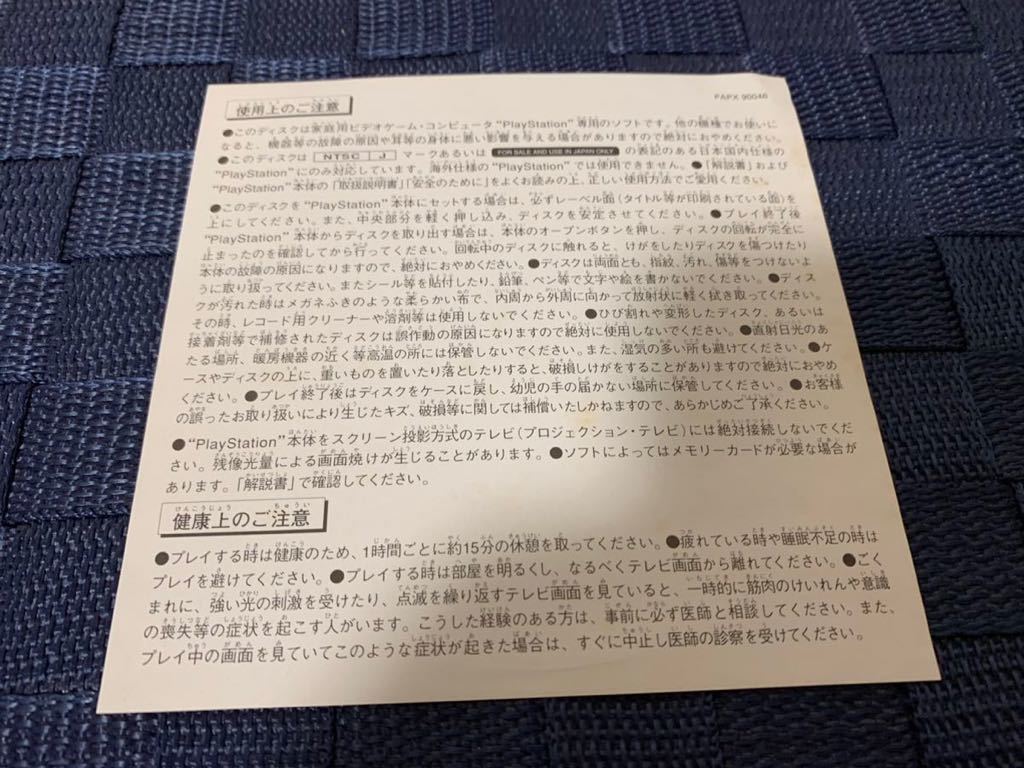 PAPX 90046
使用上のご注意
●このディスクは家庭用ビデオゲーム・コンピュータ“PlayStation”専用のソフトです。他の機種でお使いに
なると、機器等の故障の原因や耳等の身体に悪い影響を与える場合がありますので絶対におやめください。
●このディスクは NTSC J マークあるいは FOR SALE AND USE IN JAPAN ONLY の表記のある日本国内仕様の
“PlayStation”にのみ対応しています。海外仕様の“PlayStation”では使用できません。●「解説書」および
“PlayStation”本体の「取扱説明書」「安全のために」をよくお読みの上、正しい使用方法でご愛用ください。
●このディスクを“PlayStation”本体にセットする場合は、必ずレーベル面(タイトル等が印刷されている面)を
上にしてください。また、中央部分を軽く押し込み、ディスクを安定させてください。●プレイ終了後
“PlayStation”本体からディスクを取り出す場合は、本体のオープンボタンを押し、ディスクの回転が完全に
止まったのを確認してから行ってください。回転中のディスクに触れると、けがをしたりディスクを傷つけたり
本体の故障の原因になりますので、絶対におやめください。●ディスクは両面とも、指紋、汚れ、傷等をつけないよ
うに取り扱ってください。またシール等を貼付したり、鉛筆、ペン等で文字や絵を書かないでください。●ディス
クが汚れた時はメガネふきのような柔らかい布で、内周から外周に向かって放射状に軽く拭き取ってください。
その時、レコード用クリーナーや溶剤等は使用しないでください。●ひび割れや変形したディスク、あるいは
接着剤等で補修されたディスクは誤作動の原因になりますので絶対に使用しないでください。●直射日光のあ
たる場所、暖房機器の近く等高温の所には保管しないでください。また、湿気の多い所も避けてください。●ケ
ースやディスクの上に、重いものを置いたり落としたりすると、破損しけがをすることがありますので絶対におやめ
ください。●プレイ終了後はディスクをケースに戻し、幼児の手の届かない場所に保管してください。●お客様
の誤ったお取り扱いにより生じたキズ、破損等に関しては補償いたしかねますので、あらかじめご了承ください。
●“PlayStation”本体をスクリーン投影方式のテレビ(プロジェクション・テレビ)には絶対接続しないでくだ
さい。残像光量による画面焼けが生じることがあります。●ソフトによってはメモリーカードが必要な場合が
あります。「解説書」で確認してください。
健康上のご注意
●プレイする時は健康のため、1時間ごとに約15分の休憩を取ってください。●疲れている時や睡眠不足の時は
プレイを避けてください。●プレイする時は部屋を明るくし、なるべくテレビ画面から離れてください。●ごく
まれに、強い光の刺激を受けたり、点滅を繰り返すテレビ画面を見ていると、一時的に筋肉のけいれんや意識
の喪失等の症状を起こす人がいます。こうした経験のある方は、事前に必ず医師と相談してください。また、
プレイ中の画面を見ていてこのような症状が起きた場合は、すぐに中止し医師の診察を受けてください。